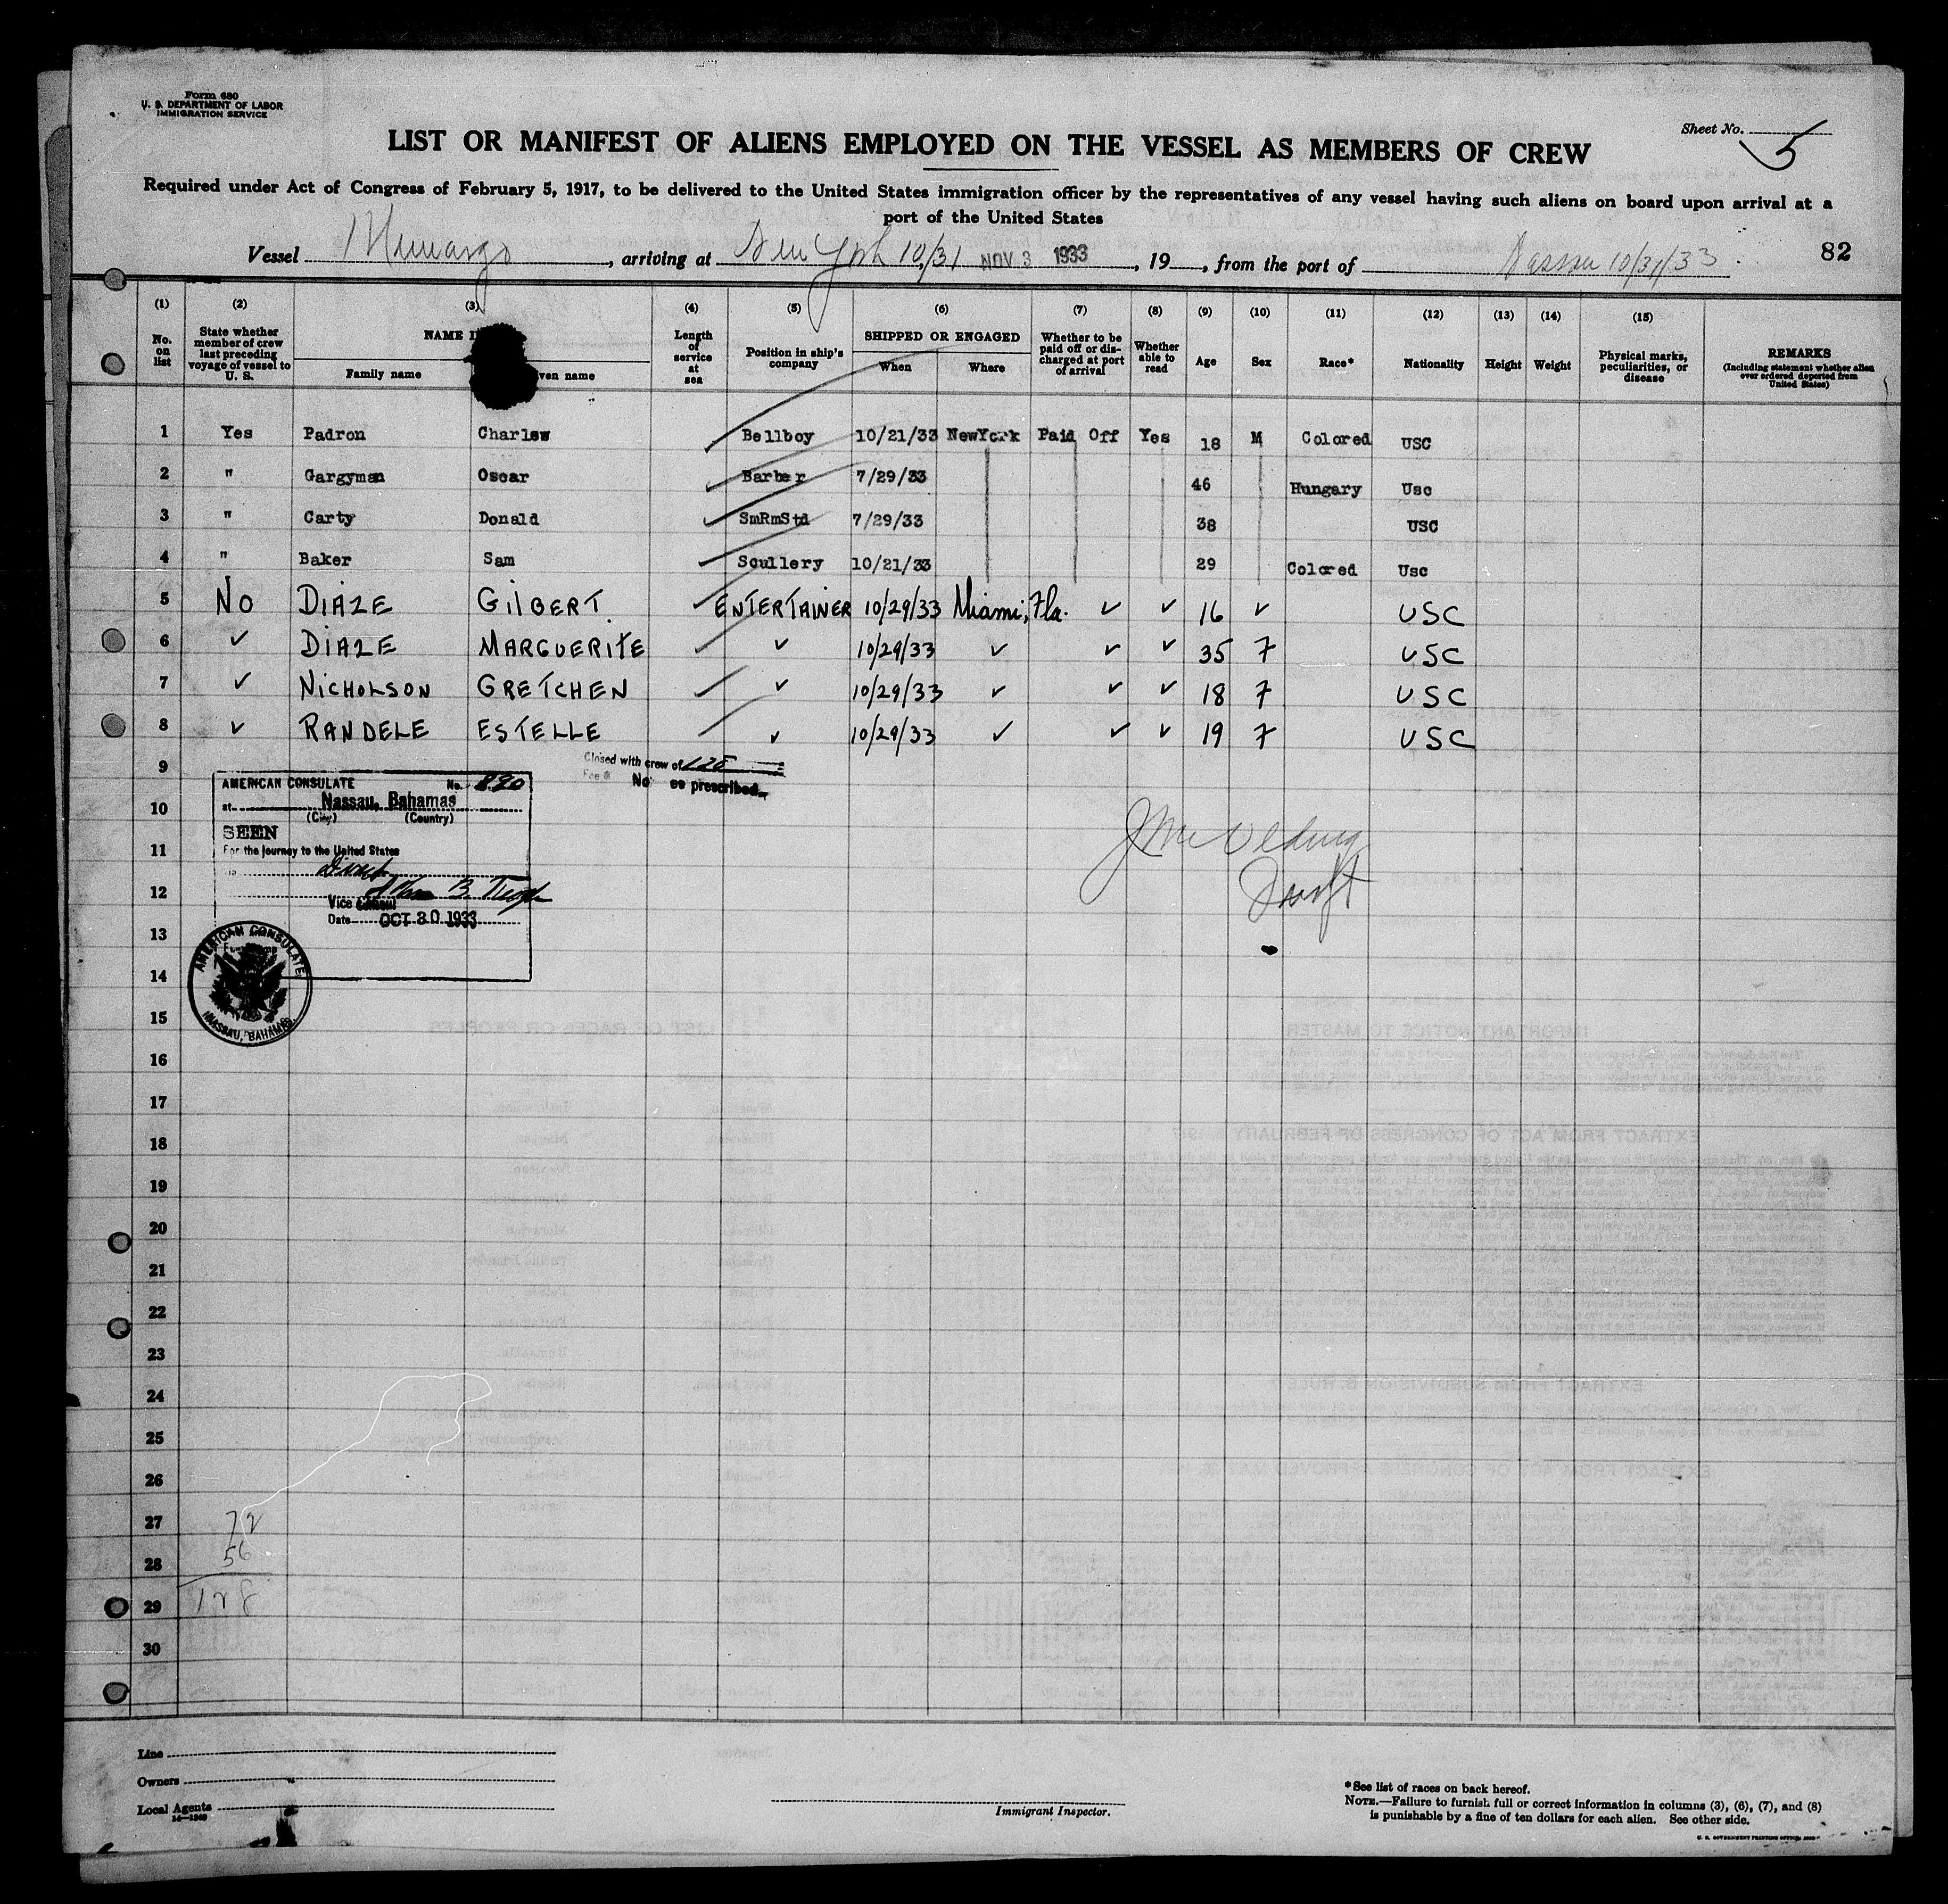 Form 680
U. S. DEPARTMENT OF LABOR
IMMIGRATION SERVICE
Sheet No. 5
LIST OR MANIFEST OF ALIENS EMPLOYED ON THE VESSEL AS MEMBERS OF CREW
Required under Act of Congress of February 5, 1917, to be delivered to the United States immigration officer by the representatives of any vessel having such aliens on board upon arrival at a
port of the United States
Vessel Munargo, arriving at New York 10/31 NOV 3 1933, 19, from the port of Nassau 10/31/33. 82
(1) (2) (3) (4) (5) (6) (7) (8) (9) (10) (11) (12) (13) (14) (15)
No. on list
State whether member of crew last preceding voyage of vessel to U. S.
NAME I
Family name
ven name
Length of service at sea
Position in ship's company
SHIPPED OR ENGAGED
When
Where
Whether to be paid off or discharged at port of arrival
Whether able to read
Age
Sex
Race*
Nationality
Height
Weight
Physical marks, peculiarities, or disease
REMARKS
(Including statement whether alien ever ordered deported from United States)
1 Yes Padron Charles Bellboy 10/21/33 NewYork Paid Off Yes 18 M Colored USC
2 " Gargyman Oscar Barber 7/29/33 46 Hungary Usc
3 " Carty Donald SmRmStd 7/29/33 38 USC
4 " Baker Sam Scullery 10/21/33 29 Colored Usc
5 No DIAZE GILBERT ENTERTAINER 10/29/33 Miami, Fla. ✓ ✓ 16 ✓ USC
6 ✓ DIAZE MARGUERITE ✓ 10/29/33 ✓ ✓ ✓ 35 F USC
7 ✓ NICHOLSON GRETCHEN ✓ 10/29/33 ✓ ✓ ✓ 18 F USC
8 ✓ RANDELE ESTELLE ✓ 10/29/33 ✓ ✓ ✓ 19 F USC
9
Closed with crew of
Fee $ No prescribed
AMERICAN CONSULATE No. 890
at Nassau, Bahamas
(City) (Country)
10
SEEN
For the journey to the United States
11
Direct
12
Vice Consul
Date OCT 30 1933
13
AMERICAN CONSULATE
NASSAU, BAHAMAS
14
15
16
17
18
19
20
21
22
23
24
25
26
27 72
28 56
29 128
30
Line
Owners
Local Agents
14—1240
Immigrant Inspector.
*See list of races on back hereof.
NOTE.—Failure to furnish full or correct information in columns (3), (6), (7), and (8)
is punishable by a fine of ten dollars for each alien. See other side.
U. S. GOVERNMENT PRINTING OFFICE